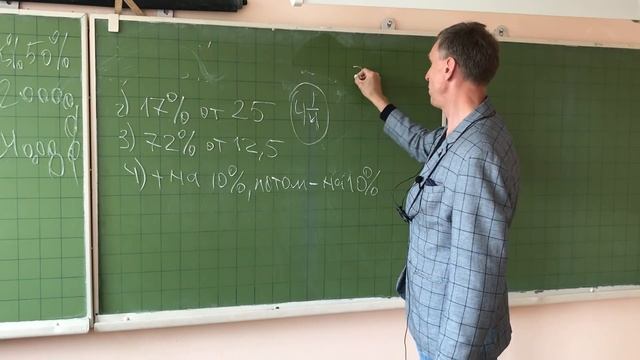 50%
20000
2) 17% от 25
3) 72% от 12,5
4) + на 10%, потом – на 10%